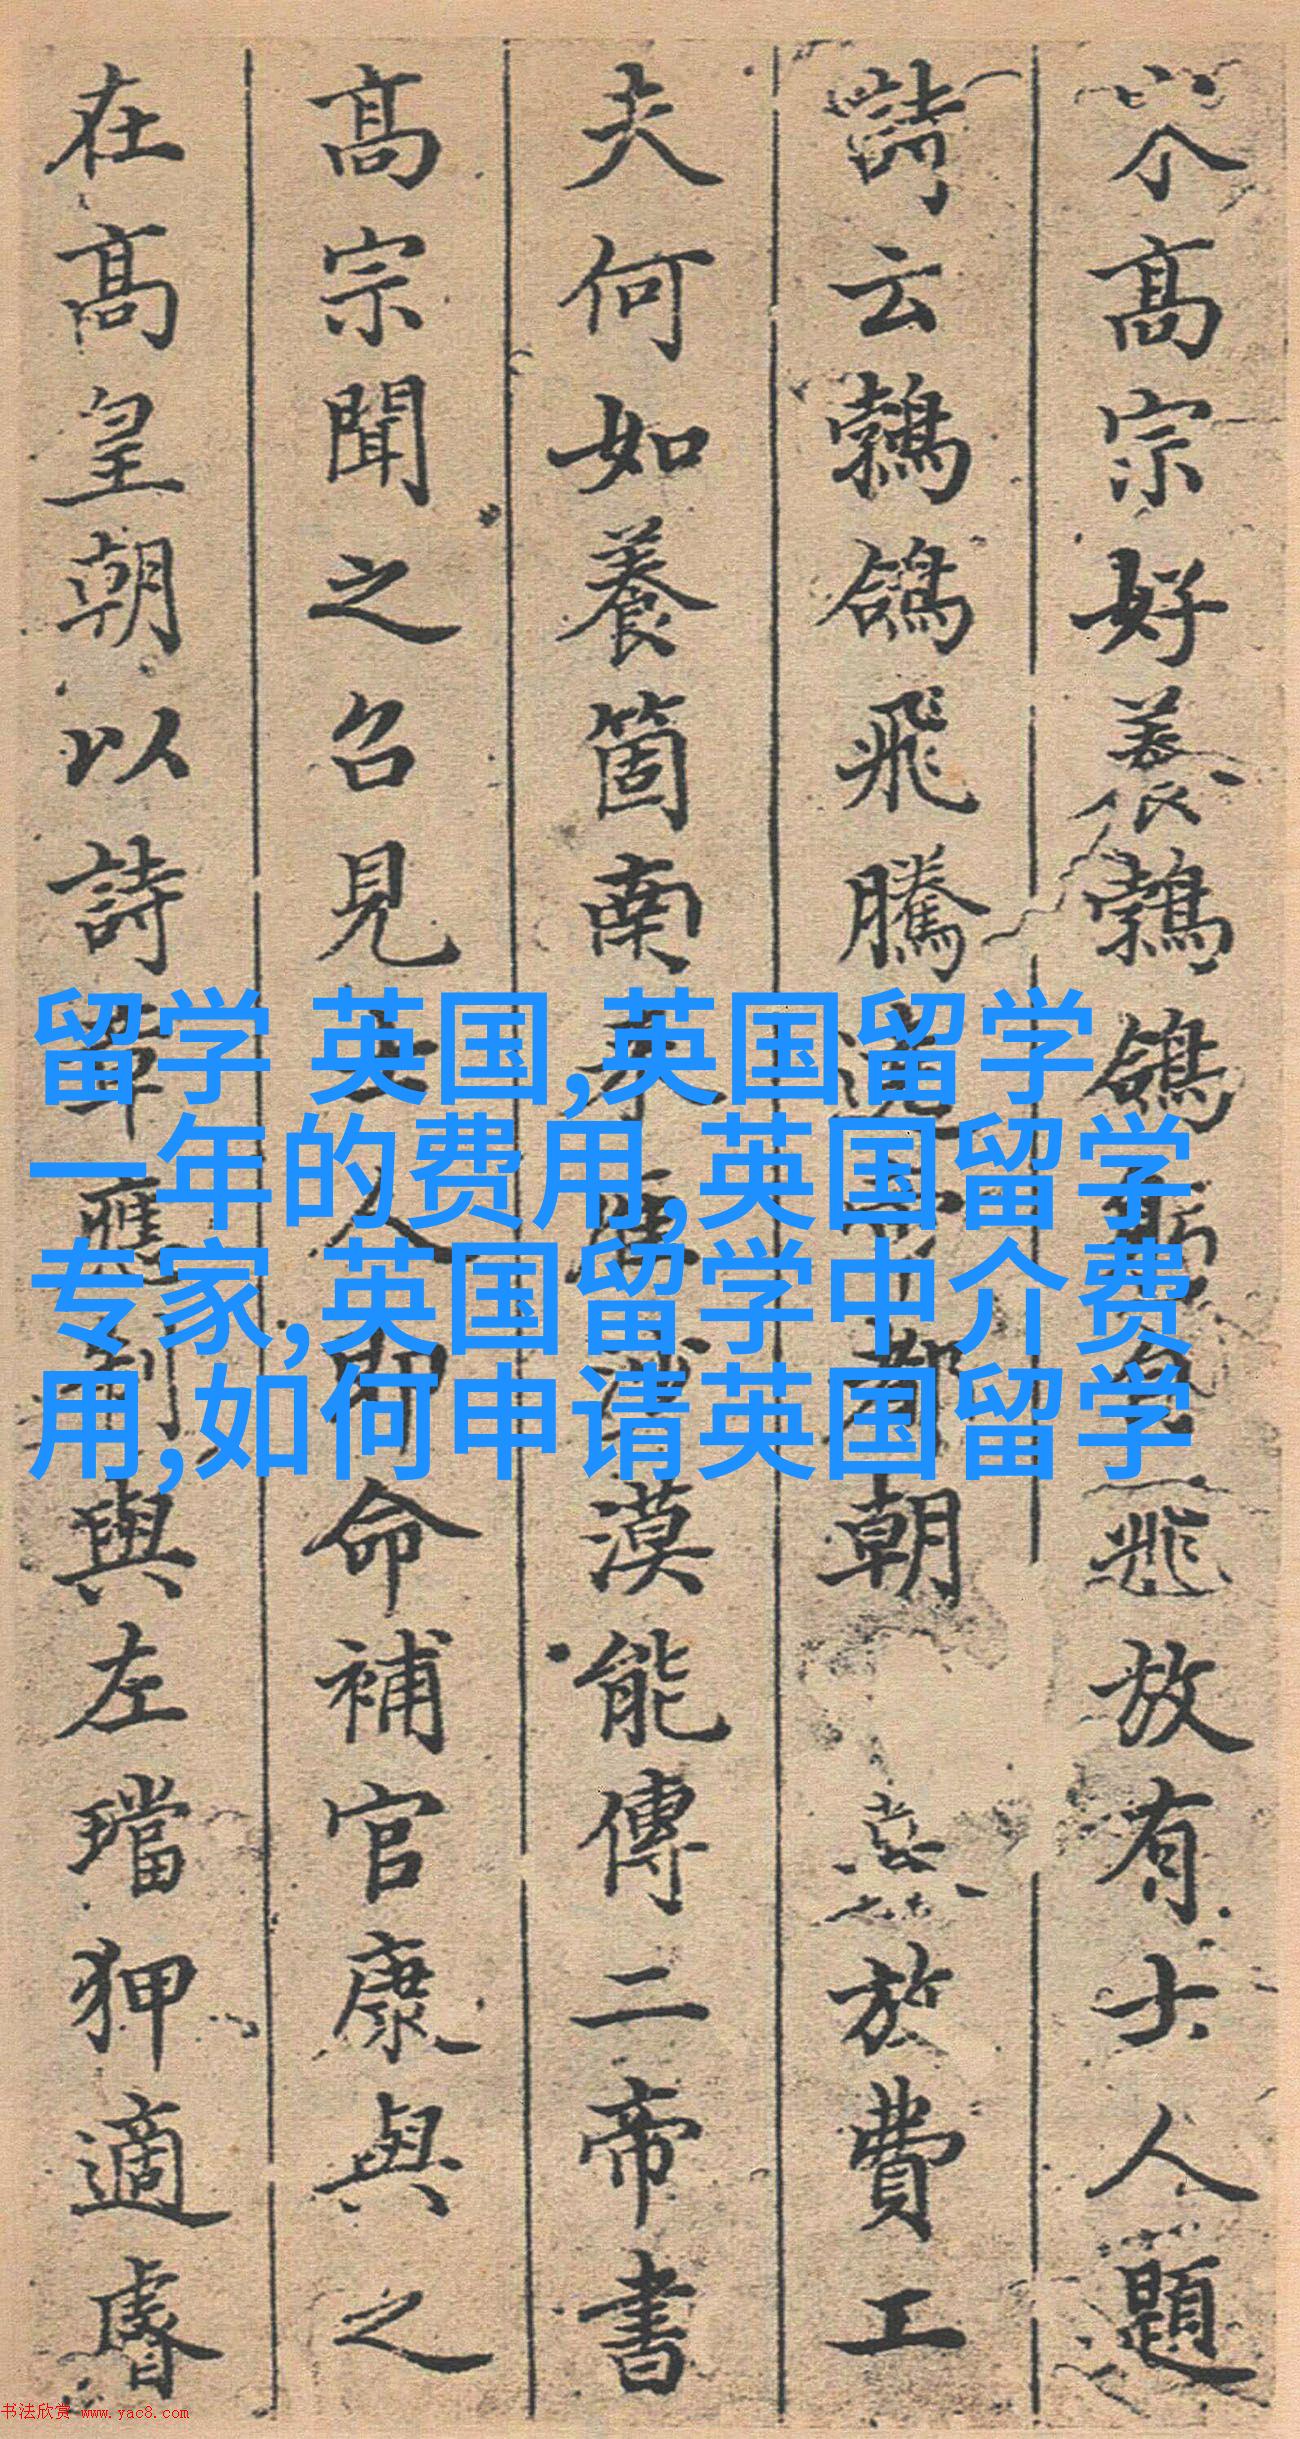 高宗好養鵓鴿躬自飛放有士人題
詩云鵓鴿飛騰遶帝都朝放費工
夫何如養箇南來鴈沙漠能傳二帝書
高宗聞之召見士人即命補官康與之
在高皇朝以詩章應制與左璫狎適睿
留学 英国,英国留学
一年的费用,英国留学
专家,英国留学中介费
用,如何申请英国留学
书法欣赏 www.yac8.com